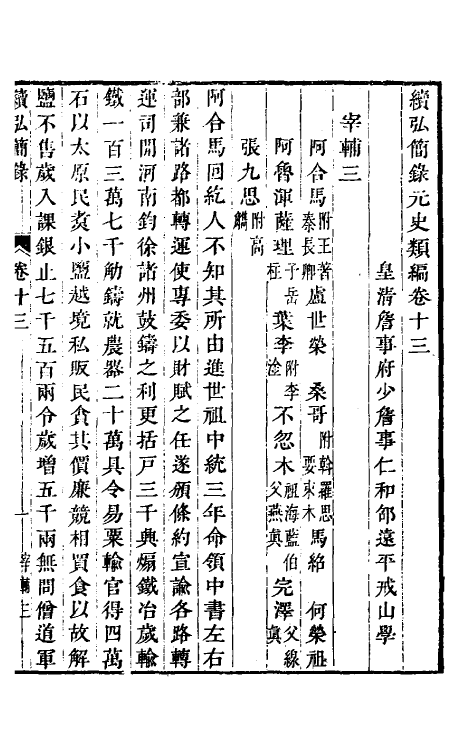 續弘簡錄元史類編卷十三
皇淸詹事府少詹事仁和邵遠平戒山學
宰輔三
阿合馬附王著秦長卿 盧世榮 桑哥附幹羅思要束木 馬紹 何榮祖
阿魯渾薩理子岳柱 葉李附李淦 不忽木祖海藍伯父燕眞 完澤父線眞
張九思附高觿
阿合馬回紇人不知其所由進世祖中統三年命領中書左右
部兼諸路都轉運使專委以財賦之任遂頒條約宣諭各路轉
運司開河南鈞徐諸州鼓鑄之利更括戶三千典煽鐵冶歲輸
鐵一百三萬七千觔鑄就農器二十萬具令易粟輸官得四萬
石以太原民煑小鹽越境私販民貪其價廉競相買食以故解
鹽不售歲入課銀止七千五百兩令歲增五千兩無問僧道軍
續弘簡錄 卷十三 一 宰輔三